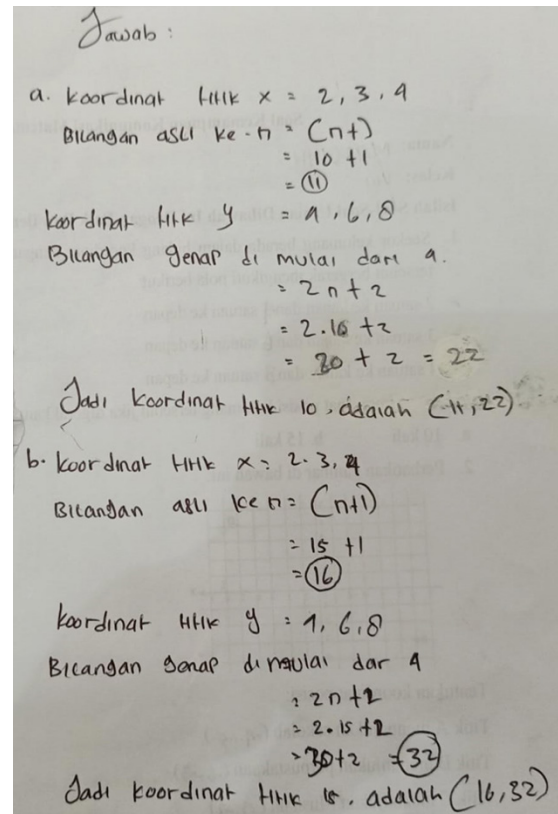 Jawab :
a. koordinat titik x = 2, 3, 4
Bilangan asli ke-n = (n+1)
= 10 +1
= 11
koordinat titik y = 4, 6, 8
Bilangan genap di mulai dari 4.
= 2n + 2
= 2.10 +2
= 20 + 2 = 22
Jadi koordinat titik 10. adalah (11,22)
b. koordinat titik x = 2. 3, 4
Bilangan asli ke n = (n+1)
= 15 +1
= 16
koordinat titik y = 4, 6, 8
Bilangan genap di mulai dar 4
= 2n +2
= 2.15 +2
= 30+2 = 32
Jadi koordinat titik 15. adalah (16,32)